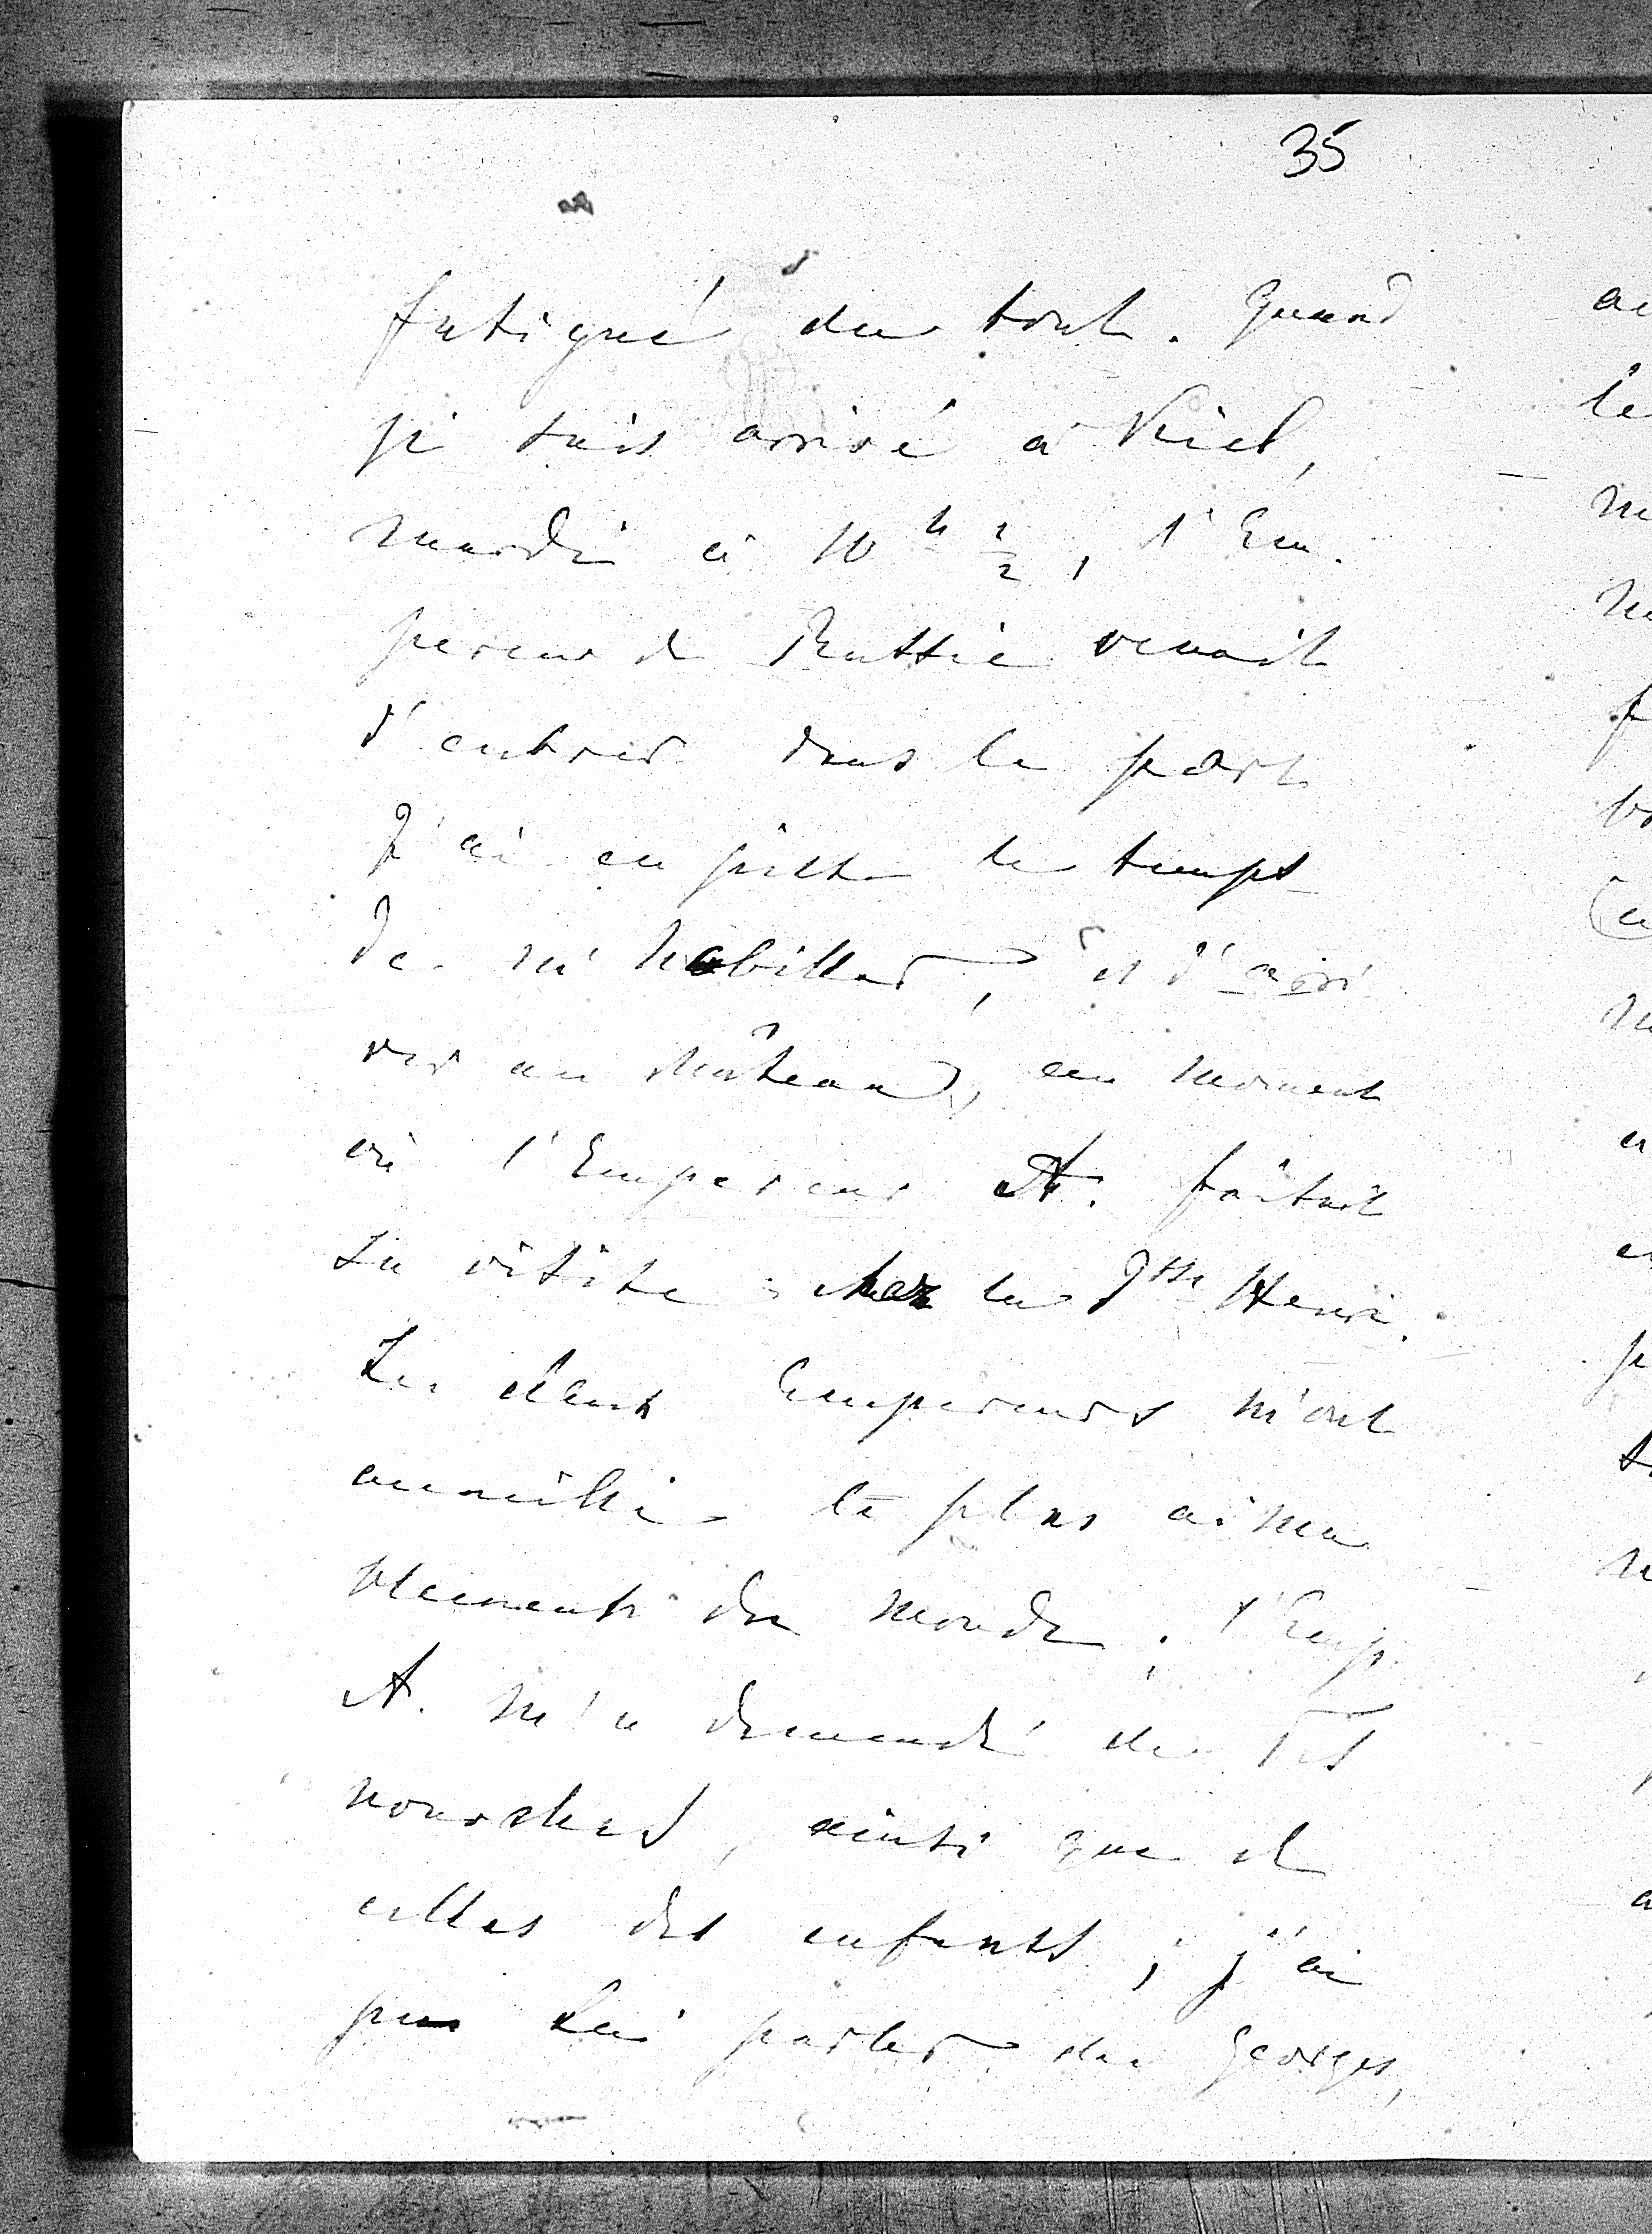 35
fatigué du tout. Quand
je suis arrivé à Kiel,
mardi à 10 h 1/2, l'Em-
pereur de Russie venait
d'entrer dans le port
J'ai eu juste le temps
de m'habiller, et d'arri
ver au château, au moment
où l'Empereur A. faisait
sa visite chez la Psse Henri.
Les deux Empereurs m'ont
accueilli le plus aima
blement du monde; l'Emp.
A. m'a demandé de Tes
nouvelles, ainsi que d
celles des enfants; j'ai
pu Lui parler de Georges,